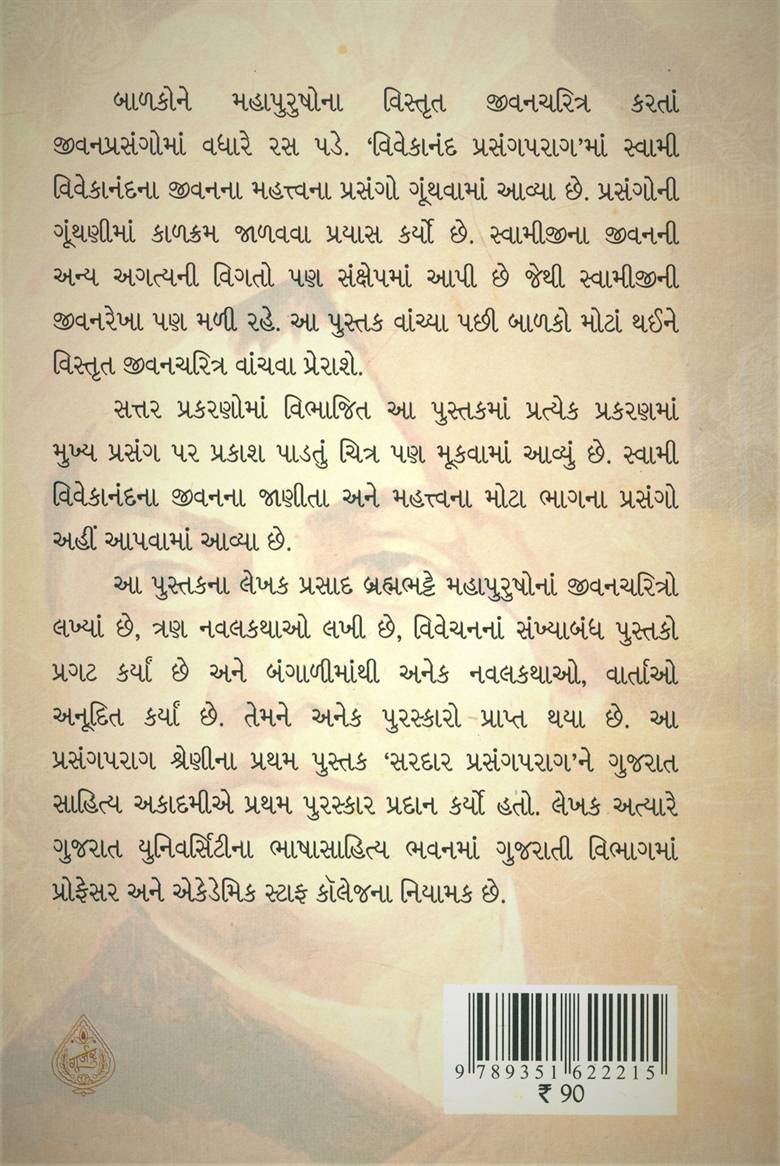 બાળકોને મહાપુરુષોના વિસ્તૃત જીવનચરિત્ર કરતાં
જીવનપ્રસંગોમાં વધારે રસ પડે. ‘વિવેકાનંદ પ્રસંગપરાગ’માં સ્વામી
વિવેકાનંદના જીવનના મહત્ત્વના પ્રસંગો ગૂંથવામાં આવ્યા છે. પ્રસંગોની
ગૂંથણીમાં કાળક્રમ જાળવવા પ્રયાસ કર્યો છે. સ્વામીજીના જીવનની
અન્ય અગત્યની વિગતો પણ સંક્ષેપમાં આપી છે જેથી સ્વામીજીની
જીવનરેખા પણ મળી રહે. આ પુસ્તક વાંચ્યા પછી બાળકો મોટાં થઈને
વિસ્તૃત જીવનચરિત્ર વાંચવા પ્રેરાશે.
સત્તર પ્રકરણોમાં વિભાજિત આ પુસ્તકમાં પ્રત્યેક પ્રકરણમાં
મુખ્ય પ્રસંગ પર પ્રકાશ પાડતું ચિત્ર પણ મૂકવામાં આવ્યું છે. સ્વામી
વિવેકાનંદના જીવનના જાણીતા અને મહત્ત્વના મોટા ભાગના પ્રસંગો
અહીં આપવામાં આવ્યા છે.
આ પુસ્તકના લેખક પ્રસાદ બ્રહ્મભટ્ટે મહાપુરુષોનાં જીવનચરિત્રો
લખ્યાં છે, ત્રણ નવલકથાઓ લખી છે, વિવેચનનાં સંખ્યાબંધ પુસ્તકો
પ્રગટ કર્યાં છે અને બંગાળીમાંથી અનેક નવલકથાઓ, વાર્તાઓ
અનૂદિત કર્યાં છે. તેમને અનેક પુરસ્કારો પ્રાપ્ત થયા છે. આ
પ્રસંગપરાગ શ્રેણીના પ્રથમ પુસ્તક ‘સરદાર પ્રસંગપરાગ’ને ગુજરાત
સાહિત્ય અકાદમીએ પ્રથમ પુરસ્કાર પ્રદાન કર્યો હતો. લેખક અત્યારે
ગુજરાત યુનિવર્સિટીના ભાષાસાહિત્ય ભવનમાં ગુજરાતી વિભાગમાં
પ્રોફેસર અને એકેડેમિક સ્ટાફ કૉલેજના નિયામક છે.
ગૂર્જર
9 789351 622215
₹ 90